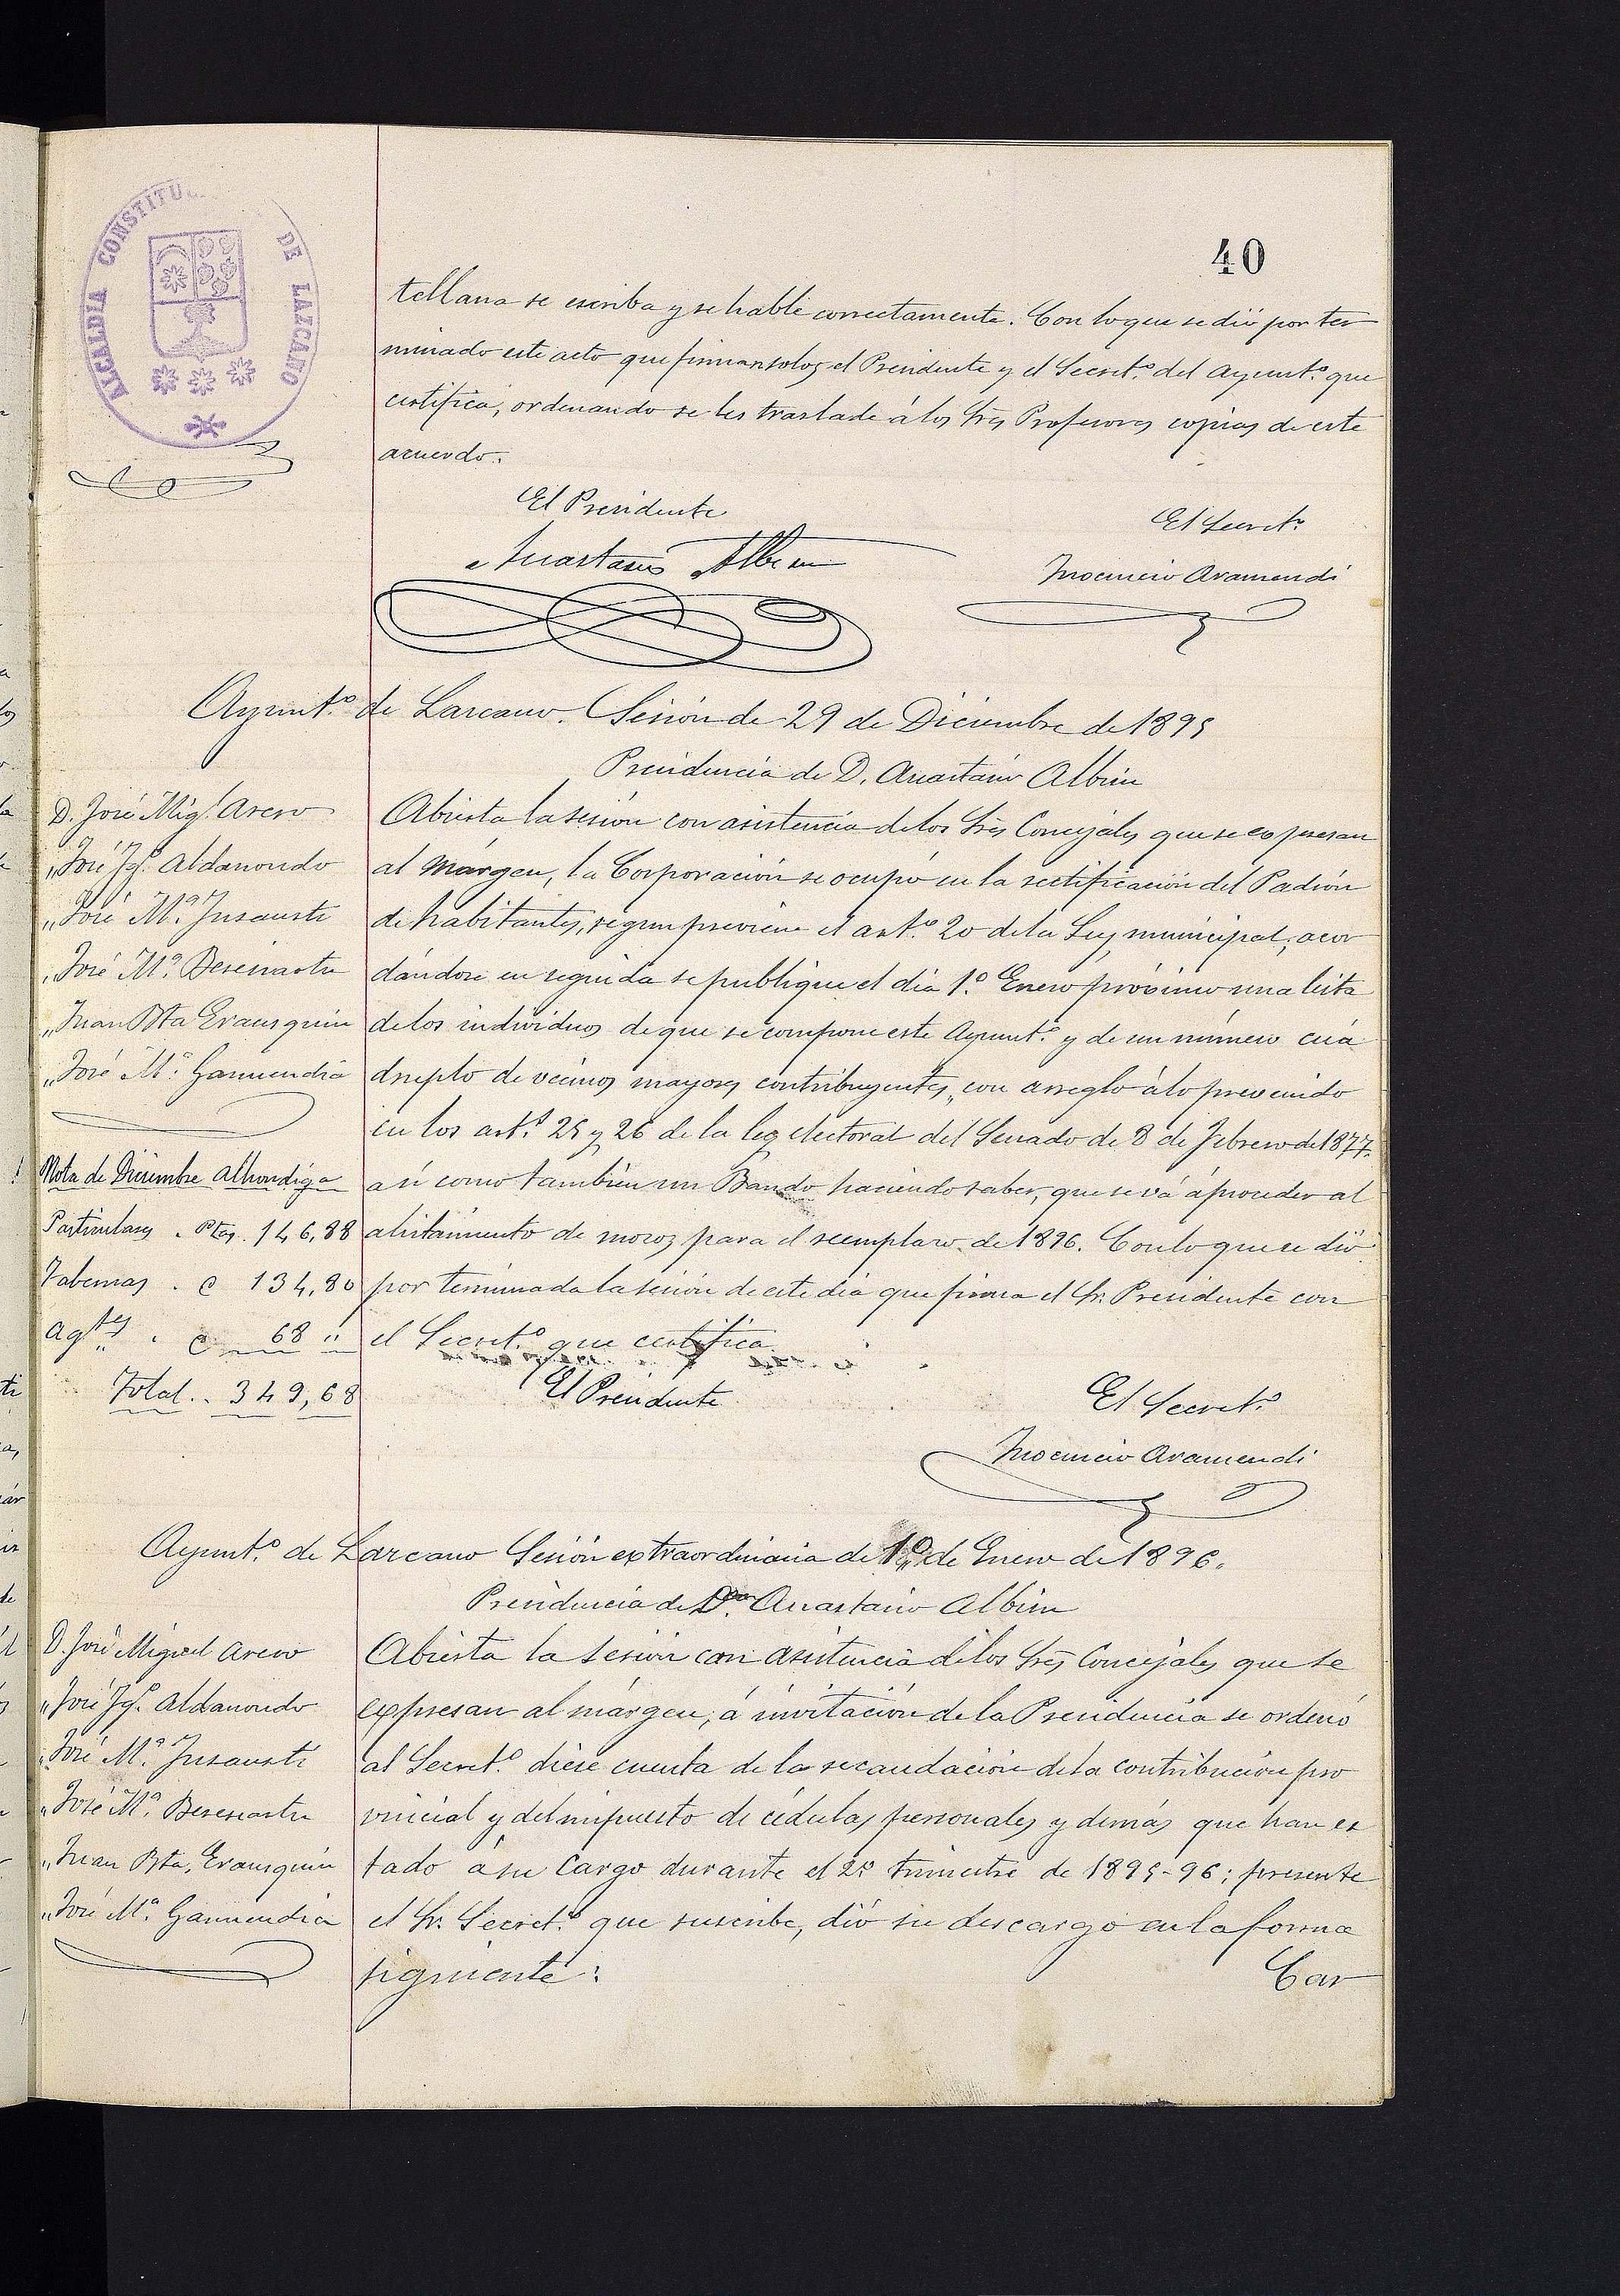 40
ALCALDIA CONSTITUC DE LAZCANO
tellana se escriba y se hable correctamente. Con lo que se dió por ter
minado este acto que firman solos el Presidente y el Secret.º del Ayunt.º que
certifica, ordenando se les traslade á los Srs Profesores copias de este
acuerdo.
El Presidente
El Secret.º
Anastasio Albisu
Inocencio Aramendi
Ayunt.º de Lazcano. Sesión de 29 de Diciembre de 1895
Presidencia de D. Anastasio Albisu
D. José Mig.l Areso
„ José Ig.º Aldanondo
„ José M.ª Insausti
„ José M.ª Beresiartu
„ Juan Bta Erausquin
„ José M.ª Garmendia
Abierta la sesión con asistencia de los Srs Concejales que se expresan
al márgen, la Corporación se ocupó en la rectificación del Padrón
de habitantes, segun previene el art.º 20 de la Ley municipal; acor
dándose en seguida se publique el dia 1.º Enero próximo una lista
de los individuos de que se compone este Ayunt.º y de un número cuá
druplo de vecinos mayores contribuyentes, con arreglo á lo prevenido
en los art.s 25 y 26 de la ley electoral del Senado de 8 de Febrero de 1877.
así como también un Bando haciendo saber, que se vá á proceder al
alistamiento de mozos para el reemplazo de 1896. Con lo que se dió
por terminada la sesión de este dia que firma el Sr. Presidente con
el Secret.º que certifica.
Nota de Diciembre Alhondiga
Particulares . Ptas. 146,88
Tabernas . " 134,80
Agtes . " 68 "
Total.. 349,68
El Presidente
El Secret.º
Inocencio Aramendi
Ayunt.º de Lazcano Sesión extraordinaria de 1º de Enero de 1896.
Presidencia de Dn. Anastasio Albisu
D. José Miguel Areso
„ José Ig.º Aldanondo
„ José M.ª Insausti
„ José M.ª Beresiartu
„ Juan Bta. Erausquin
„ José M.ª Garmendia
Abierta la sesión con asistencia de los Srs Concejales que se
expresan al márgen, á invitación de la Presidencia se ordenó
al Secret.º diese cuenta de la recaudación de la contribución pro
vincial y del impuesto de cédulas personales y demás que han es
tado á su cargo durante el 2º trimestre de 1895-96; presente
el Sr. Secret.º que suscribe, dió su descargo en la forma
siguiente:
Car